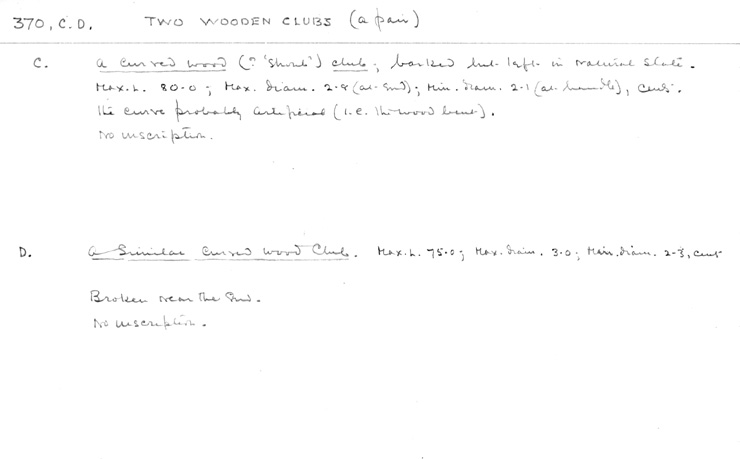 370, C.D. TWO WOODEN CLUBS (a pair)
C. A curved wood (? 'Shonts') club; barked but left in natural state.
Max. L. 80.0; Max. diam. 2.8 (at end); Min. diam. 2.1 (at handle), cents.
The curve probably artificial (i.e. the wood bent).
No inscription.
D. A similar curved wood club. Max. L. 75.0; Max. diam. 3.0; Min. diam. 2.3, cent
Broken near the end.
No inscription.